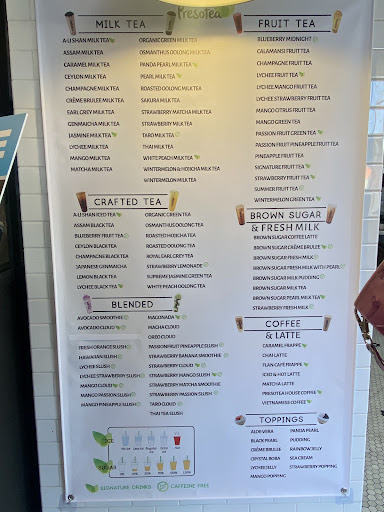 PresoTea
MILK TEA
A-LI SHAN MILK TEA
ASSAM MILK TEA
CARAMEL MILK TEA
CEYLON MILK TEA
CHAMPAGNE MILK TEA
CRÈME BRULEE MILK TEA
EARL GREY MILK TEA
GENMAICHA MILK TEA
JASMINE MILK TEA
LYCHEE MILK TEA
MANGO MILK TEA
MATCHA MILK TEA
ORGANIC GREEN MILK TEA
OSMANTHUS OOLONG MILK TEA
PANDA PEARL MILK TEA
PEARL MILK TEA
ROASTED OOLONG MILK TEA
SAKURA MILK TEA
STRAWBERRY MATCHA MILK TEA
STRAWBERRY MILK TEA
TARO MILK TEA
THAI MILK TEA
WHITE PEACH MILK TEA
WINTERMELON & HOJICHA MILK TEA
WINTERMELON MILK TEA
FRUIT TEA
BLUEBERRY MIDNIGHT
CALAMANSI FRUIT TEA
CHAMPAGNE FRUIT TEA
LYCHEE FRUIT TEA
LYCHEE MANGO FRUIT TEA
LYCHEE STRAWBERRY FRUIT TEA
MANGO CITRUS FRUIT TEA
MANGO GREEN TEA
PASSION FRUIT GREEN TEA
PASSION FRUIT PINEAPPLE FRUIT TEA
PINEAPPLE FRUIT TEA
SIGNATURE FRUIT TEA
STRAWBERRY FRUIT TEA
SUMMER FRUIT TEA
WINTERMELON GREEN TEA
CRAFTED TEA
A-LI SHAN ICED TEA
ASSAM BLACK TEA
BLUEBERRY FRUIT TEA
CEYLON BLACK TEA
CHAMPAGNE BLACK TEA
JAPANESE GENMAICHA
LEMON BLACK TEA
LYCHEE BLACK TEA
ORGANIC GREEN TEA
OSMANTHUS OOLONG TEA
ROASTED HOJICHA TEA
ROASTED OOLONG TEA
ROYAL EARL GREY TEA
STRAWBERRY LEMONADE
SUPREME JASMINE GREEN TEA
WHITE PEACH OOLONG TEA
BROWN SUGAR
& FRESH MILK
BROWN SUGAR COFFEE LATTE
BROWN SUGAR CRÈME BRULEE
BROWN SUGAR FRESH MILK
BROWN SUGAR FRESH MILK WITH PEARL
BROWN SUGAR MILK PUDDING
BROWN SUGAR MILK TEA
BROWN SUGAR PEARL MILK TEA
STRAWBERRY FRESH MILK
BLENDED
AVOCADO SMOOTHIE
AVOCADO CLOUD
FRESH ORANGE SLUSH
HAWAIIAN SLUSH
LYCHEE SLUSH
LYCHEE STRAWBERRY SLUSH
MANGO CLOUD
MANGO PASSION SLUSH
MANGO PINEAPPLE SLUSH
MAGONADA
MACHA CLOUD
OREO CLOUD
PASSIONFRUIT PINEAPPLE SLUSH
STRAWBERRY BANANA SMOOTHIE
STRAWBERRY CLOUD
STRAWBERRY MANGO SLUSH
STRAWBERRY MATCHA SMOOTHIE
STRAWBERRY PASSION SLUSH
TARO CLOUD
THAI TEA SLUSH
COFFEE
& LATTE
CARAMEL FRAPPE
CHAI LATTE
FLAN CAFÉ FRAPPE
ICED & HOT LATTE
MATCHA LATTE
PRESOTEA HOUSE COFFEE
VIETNAMESE COFFEE
TOPPINGS
ALOE VERA
BLACK PEARL
CRÈME BRULEE
CRYSTAL BOBA
LYCHEE JELLY
MANGO POPPING
PANDA PEARL
PUDDING
RAINBOW JELLY
SEA CREAM
STRAWBERRY POPPING
ICE
SUGAR
SIGNATURE DRINKS
CAFFEINE FREE